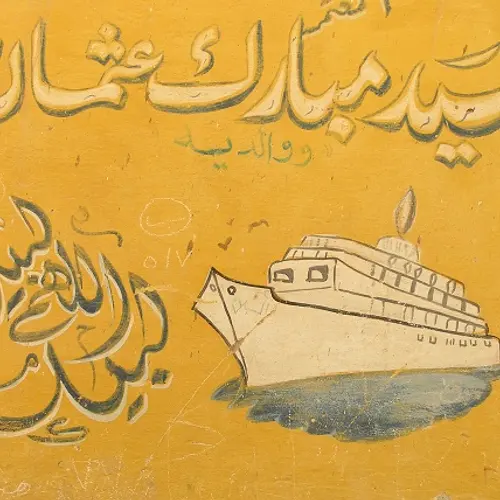 سيد مبارك عثمان
ووالديه
لبيك اللهم لبيك
٥١٧